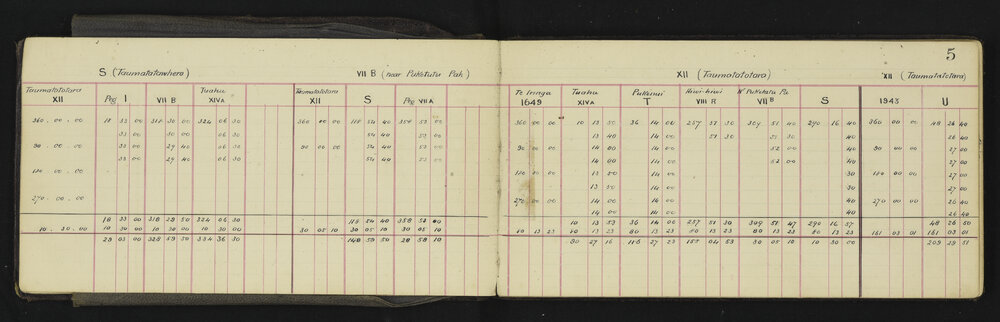 5
S (Taumatatawhero) VII B (near Puketutu Pah) XII (Taumatatotara) XII (Taumatatotara)
Taumatatotara Tuahu Taumatatotara Te Iringa Tuahu Pukeinui Kiwi-kiwi Nr Puketutu Pa
XII Peg I VII B XIV A XII S Peg VII A 1649 XIV A T VIII R VII B S 1943 U
360 . 00 . 00 18 33 00 318 30 00 324 06 30 360 00 00 118 54 40 358 53 00 360 00 00 10 13 50 36 14 00 257 51 30 309 51 40 290 16 40 360 00 00 48 26 40
33 00 30 00 06 30 54 40 53 00 13 40 14 00 51 30 51 30 40 26 40
90 . 00 . 00 33 00 29 40 06 30 90 00 00 54 40 53 00 90 00 00 14 00 14 00 52 00 40 90 00 00 27 00
33 00 29 40 06 30 54 40 53 00 14 00 14 00 52 00 40 27 00
180 . 00 . 00 180 00 00 13 50 14 00 30 180 00 00 27 00
13 50 14 00 30 27 00
270 . 00 . 00 270 00 00 14 00 14 00 40 270 00 00 26 40
14 00 14 00 40 26 40
18 33 00 318 29 50 324 06 30 118 54 40 358 53 00 10 13 53 36 14 00 257 51 30 309 51 47 290 16 37 48 26 50
10 . 30 . 00 10 30 00 10 30 00 10 30 00 30 05 10 30 05 10 30 05 10 80 13 23 80 13 23 80 13 23 80 13 23 80 13 23 80 13 23 161 03 01 161 03 01
29 03 00 328 59 50 334 36 30 148 59 50 28 58 10 90 27 16 116 27 23 30 05 10 10 30 00 209 29 51